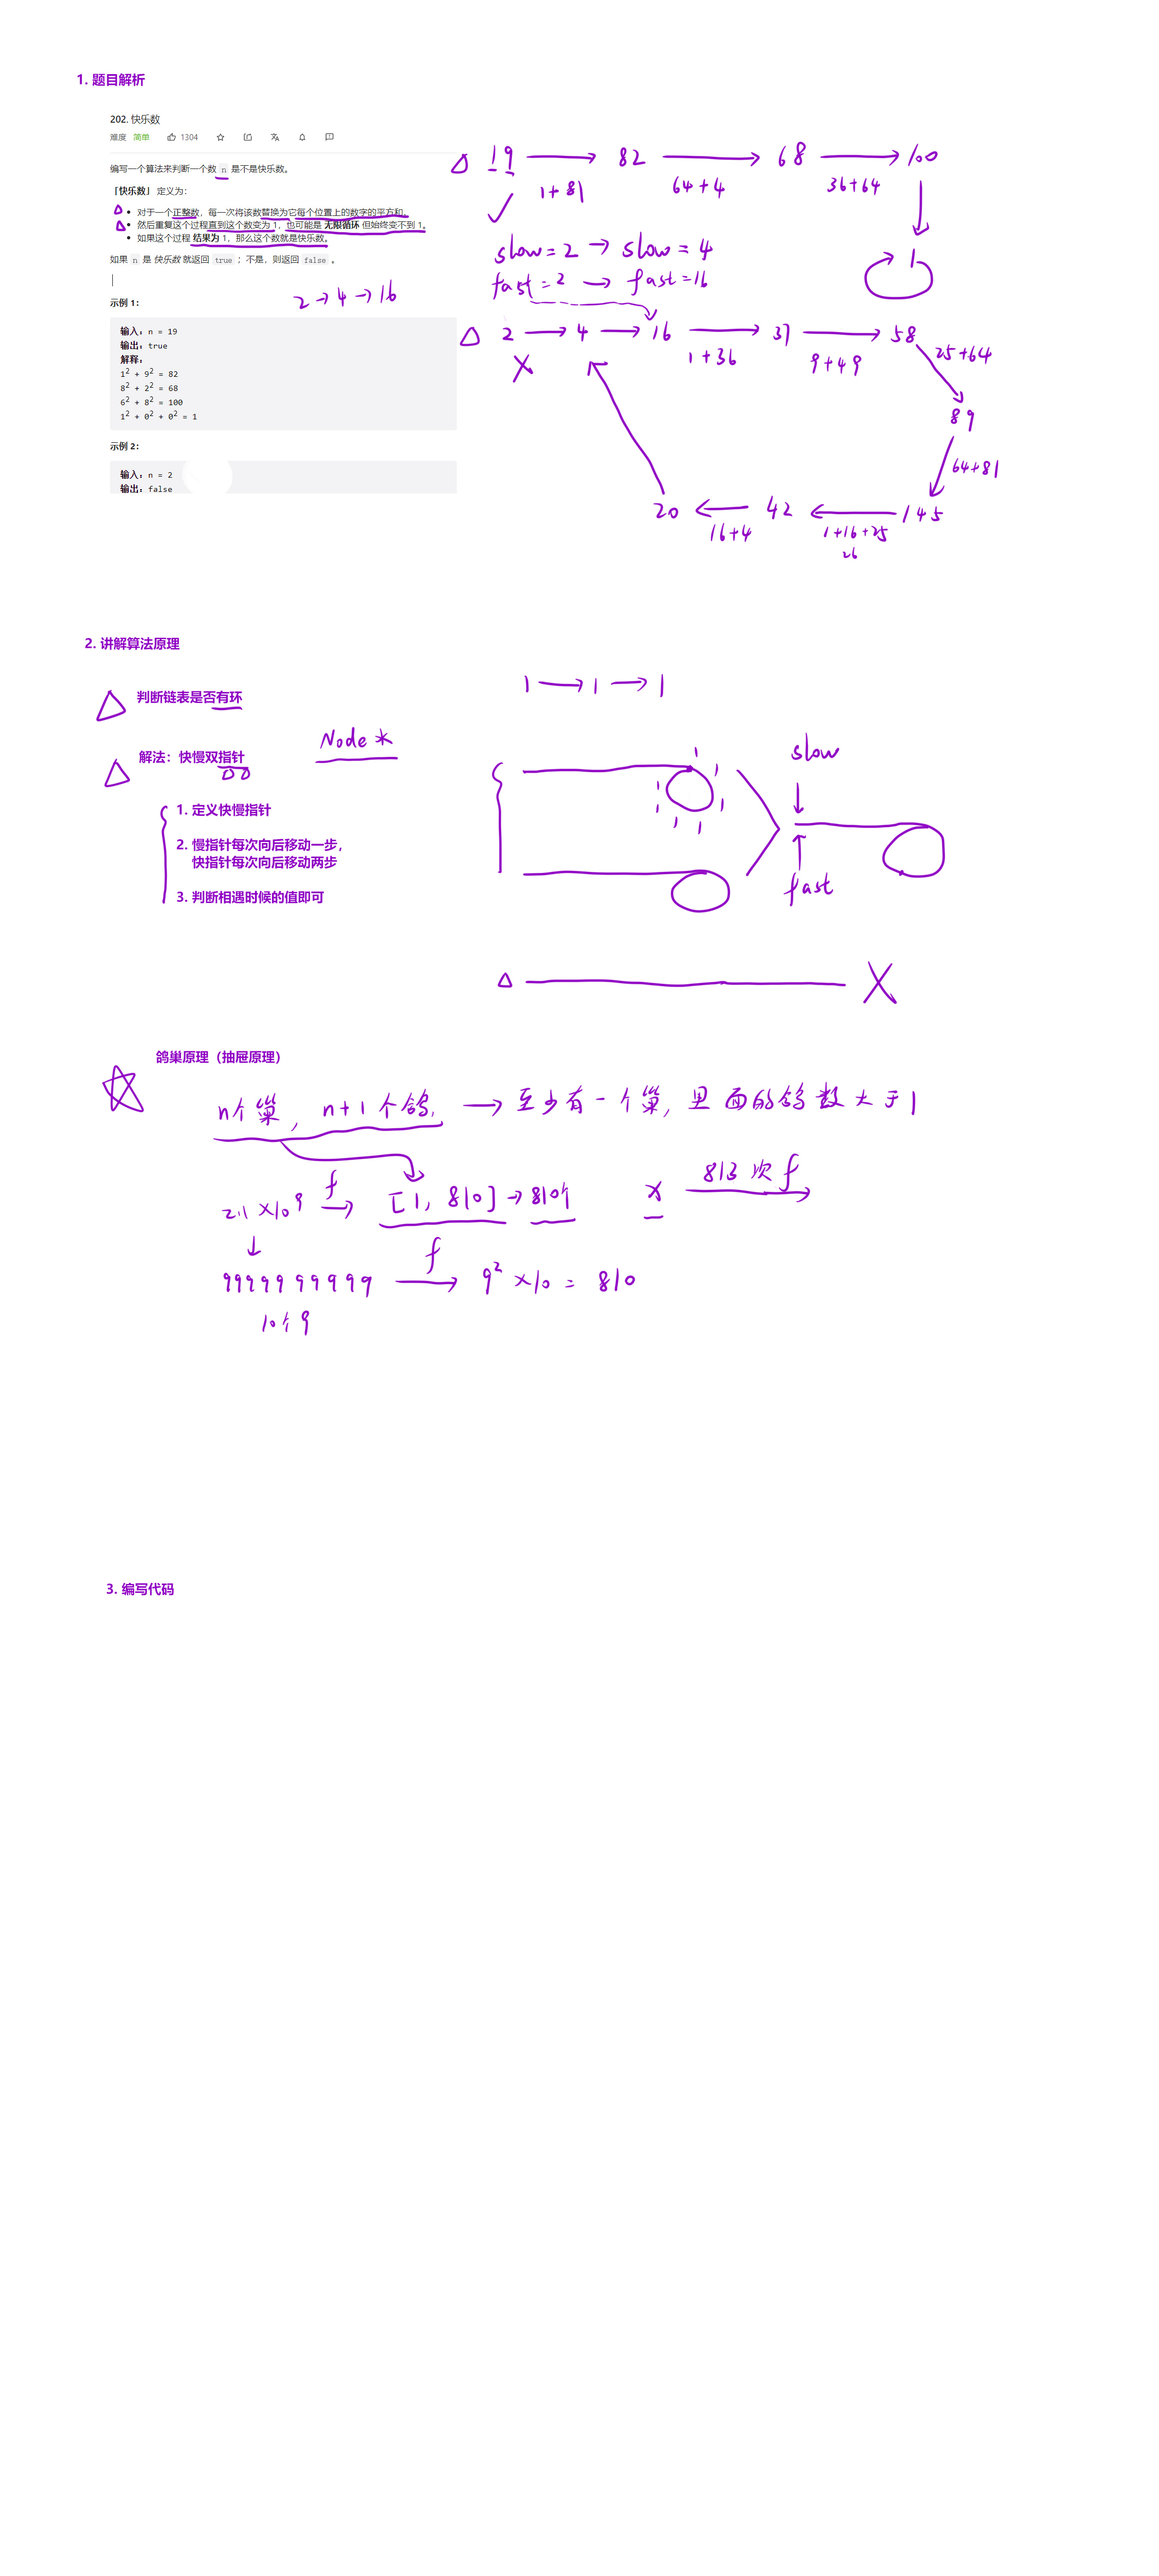 1. 题目解析
202. 快乐数
难度 简单 1304
编写一个算法来判断一个数 n 是不是快乐数。
「快乐数」 定义为：
• 对于一个正整数，每一次将该数替换为它每个位置上的数字的平方和。
• 然后重复这个过程直到这个数变为 1，也可能是 无限循环 但始终变不到 1。
• 如果这个过程 结果为 1，那么这个数就是快乐数。
如果 n 是 快乐数 就返回 true ；不是，则返回 false 。
2 → 4 → 16
示例 1：
输入：n = 19
输出：true
解释：
1² + 9² = 82
8² + 2² = 68
6² + 8² = 100
1² + 0² + 0² = 1
示例 2：
输入：n = 2
输出：false
△ 19 → 82 → 68 → 100
1+81 64+4 36+64
1
slow=2 → slow=4
fast=2 → fast=16
△ 2 → 4 → 16 → 37 → 58
1+36 9+49 25+64
89
64+81
20 ← 42 ← 145
16+4 1+16+25
26
2. 讲解算法原理
△ 判断链表是否有环
1 → 1 → 1
△ 解法：快慢双指针
Node *
1. 定义快慢指针
2. 慢指针每次向后移动一步，
快指针每次向后移动两步
3. 判断相遇时候的值即可
1 1 1 1 1 1 1
slow
fast
△ X
鸽巢原理（抽屉原理）
n个巢， n+1个鸽， → 至少有一个巢，里面的鸽数大于1
2.1×10⁹ f → [1, 810] → 810个
x 813次 f →
9999999999 f → 9²×10 = 810
10个9
3. 编写代码